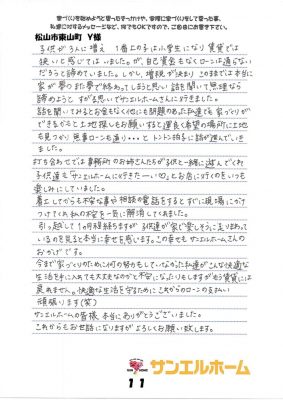 家づくりを始めようと思ったきっかけや、実際に家づくりをして思った事、
私達に対するメッセージなど、何でもOKですので、ご自由にお書き下さい。
松山市東山町 Y様
子供が3人に増え 1番上の子は小学生になり 賃貸では
狭いと感じてはいましたが、自己資金もなくローンは通らない
だろうと諦めていました。しかし、増税が決まり このままでは本当に
家が夢のまた夢で終わってしまうと思い 話を聞いて無理なら
諦めようと すがる思いでサンエルホームさんに行きました。
話を聞いてみるとお金もなく他にも問題のあった私達でも家づくりが
できるからと土地探しもお願いすると運良く希望の場所に土地
も見つかり 無事ローンも通り・・・とトントン拍子に話が進んでいき
ました。
打ち合わせでは事務所のお姉さんたちが子供と一緒に遊んでくれ
子供達も サンエルホームに行きたーい♡とお店に行くのをいつも
楽しみにしていました。
着工してからも不安な事や相談の電話をすると、すぐに現場にかけ
つけてくれ私の不安を一気に解消してくれました。
引っ越して1ヶ月程経ちますが 子供達が家で楽しそうに走りまわって
いるのを見ると本当に幸せを感じます。この幸せもサンエルホームさんの
おかげです。
今まで家づくりのために何の努力もしていなかった私達がこんな快適な
生活を手に入れても大丈夫なのかと不安になったりもしますがもう賃貸には
戻れません。快適な生活を守るためにこれからのローンの支払い
頑張ります(笑)
サンエルホームの皆様 本当にありがとうございました。
これからもお世話になりますが よろしくお願い致します。
サンエルホーム
11